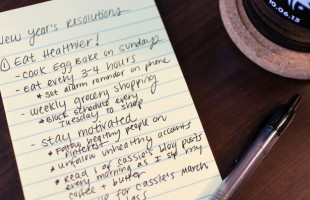 New Year's Resolutions
① Eat Healthier!
- cook Egg Bake on Sundays
- Eat every 3-4 hours
* Set alarm reminder on phone
- weekly grocery shopping
* Block schedule every
Tuesday to shop
- stay motivated
* Follow healthy people on
Pinterest
* unfollow unhealthy accounts
* Read 1 of Cassie's blog posts
every morning as I sip my
coffee + butter
up for Cassie's March
class
10.06.13